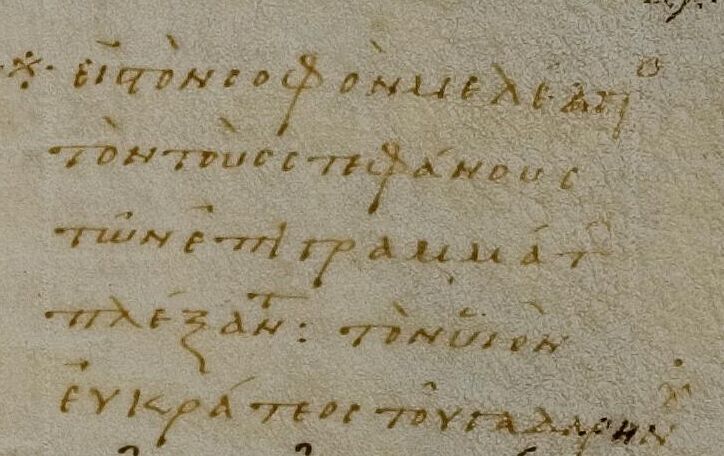 ※ εἰς τὸν σοφὸν μελέαγρο
τὸν τοὺς στεφάνους
τῶν ἐπιγραμμάτ
πλέξαντ: τὸν ὑιὸν
ἐυκράτεος τοῦ γαδαρηνȣ